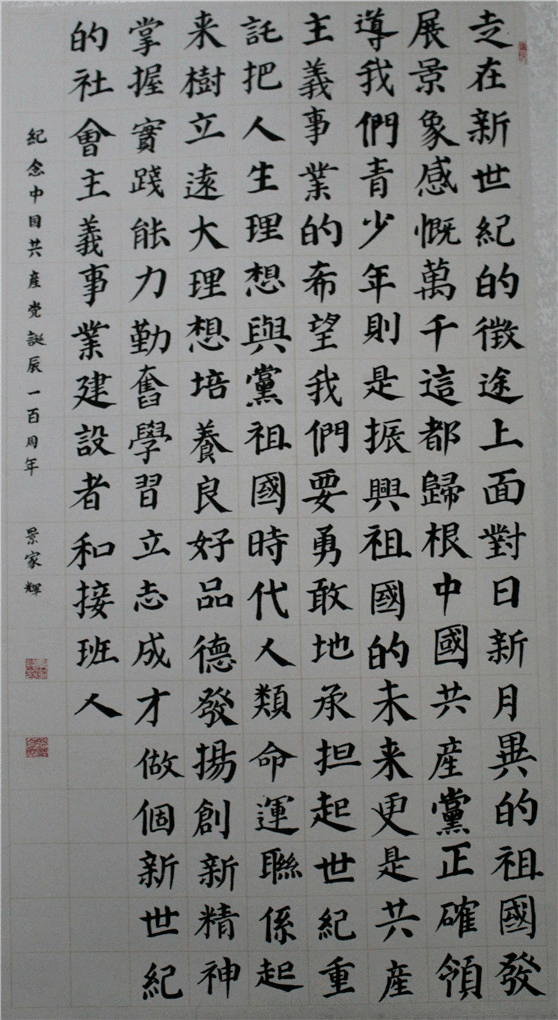 走在新世紀的徵途上面對日新月異的祖國發
展景象感慨萬千這都歸根中國共産黨正確領
導我們青少年則是振興祖國的未来更是共産
主義事業的希望我們要勇敢地承担起世紀重
託把人生理想與黨祖國時代人類命運聯係起
来樹立遠大理想培養良好品德發揚創新精神
掌握實踐能力勤奮學習立志成才做個新世紀
的社會主義事業建設者和接班人
紀念中国共産党誕辰一百周年 景家輝